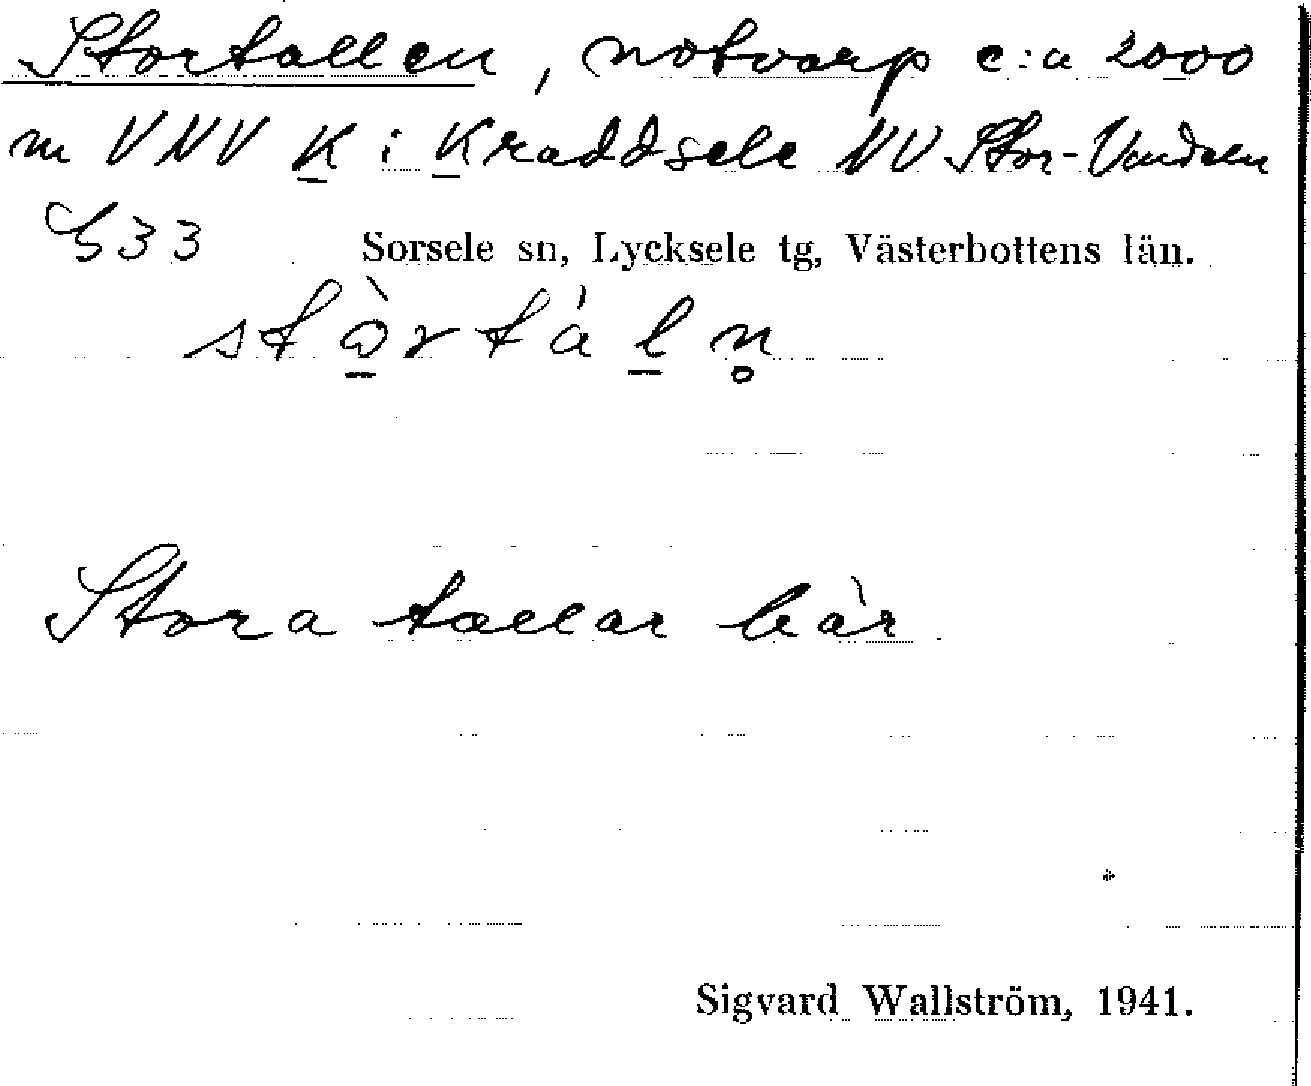 Stortallen, notvarp c:a 2000
m VNV K i Kraddsele NV Stor-Vindeln
G33 Sorsele sn, Lycksele tg, Västerbottens län.
stòrtáln̥
Stora tallar här
Sigvard Wallström, 1941.